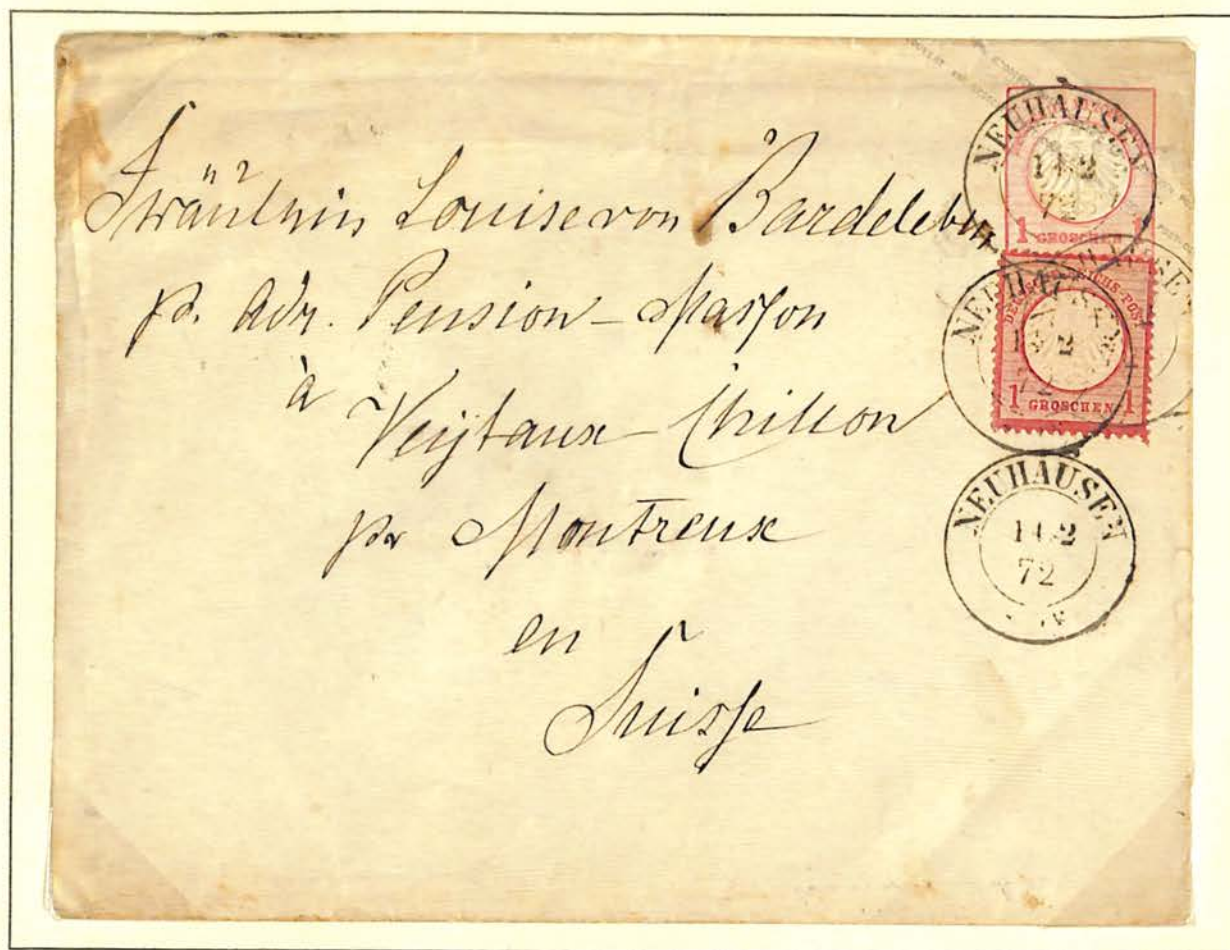 Fräulein Louise von Bardeleben
pr. Adr. Pension-Masson
à
Veytaux-Chillon
pr Montreux
en
Suisse
NEUHAUSEN
14 2
72
1 GROSCHEN
NEUHAUSEN
14 2
72
DEUTSCHE REICHS-POST
1 GROSCHEN 1
NEUHAUSEN
14 2
72